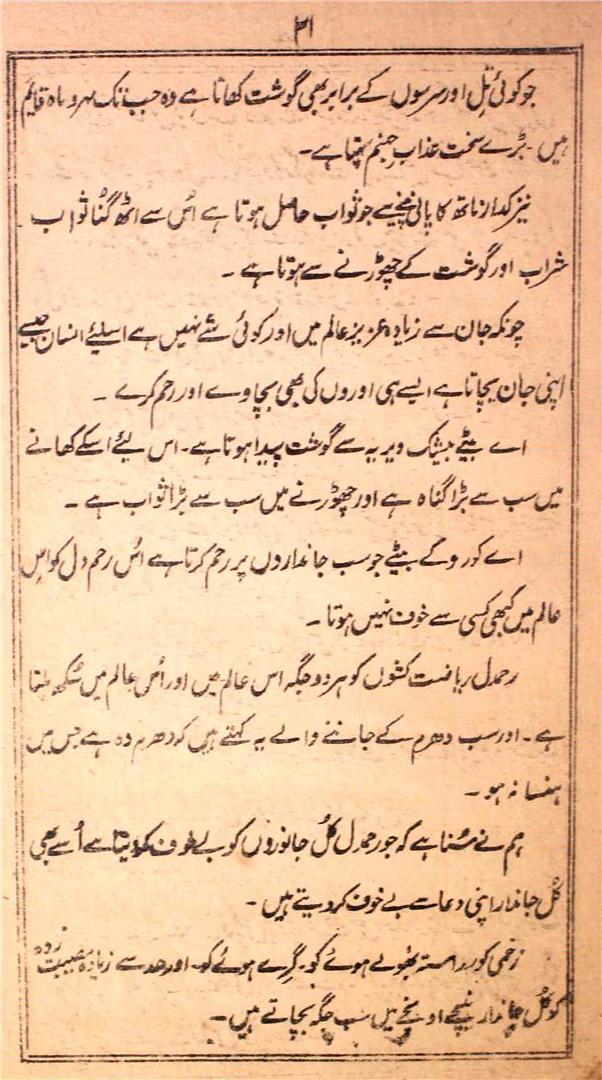 ۳۱
جو کوئی تل اور سرسوں کے برابر بھی گوشت کھاتا ہے وہ جب تک مہر و ماہ قایم
ہیں ۔ بڑے سخت عذاب جہنم سہتا ہے۔
نیز کدارناتھ کا پانی پینے سے جو ثواب حاصل ہوتا ہے اُس سے اٹھ گُنا ثواب
شراب اور گوشت کے چھوڑنے سے ہوتا ہے ۔
چونکہ جان سے زیادہ عزیز عالم میں اور کوئی شے نہیں ہے اسلیئے انسان جیسے
اپنی جان بچاتا ہے ایسے ہی اوروں کی بھی بچاوے اور رحم کرے ۔
اے بیٹے بیشک ویریہ سے گوشت پیدا ہوتا ہے۔ اس لیئے اسکے کھانے
میں سب سے بڑا گناہ ہے اور چھوڑنے میں سب سے بڑا ثواب ہے ۔
اے کورو کے بیٹے جو سب جانداروں پر رحم کرتا ہے اُس رحم دل کو اِس
عالم میں کبھی کسی سے خوف نہیں ہوتا ۔
رحمدل ریاضت کشوں کو ہر دو جگہ اس عالم میں اور اُس عالم میں سُکھ ملتا
ہے ۔ اور سب دھرم کے جاننے والے یہ کہتے ہیں کہ دھرم وہ ہے جس میں
ہنسا نہ ہو ۔
ہم نے سُنا ہے کہ جو رحمدل کُل جانوروں کو بے خوف کر دیتا ہے اُسے بھی
کُل جاندار اپنی دعا سے بے خوف کر دیتے ہیں ۔
زخمی کو ر راستہ بھُولے ہوئے کو۔ گِرے ہوئے کو۔ اور حد سے زیادہ مصیبت زدہ
کو کُل جاندار نیچے اونچے میں سب جگہ بچاتے ہیں ۔